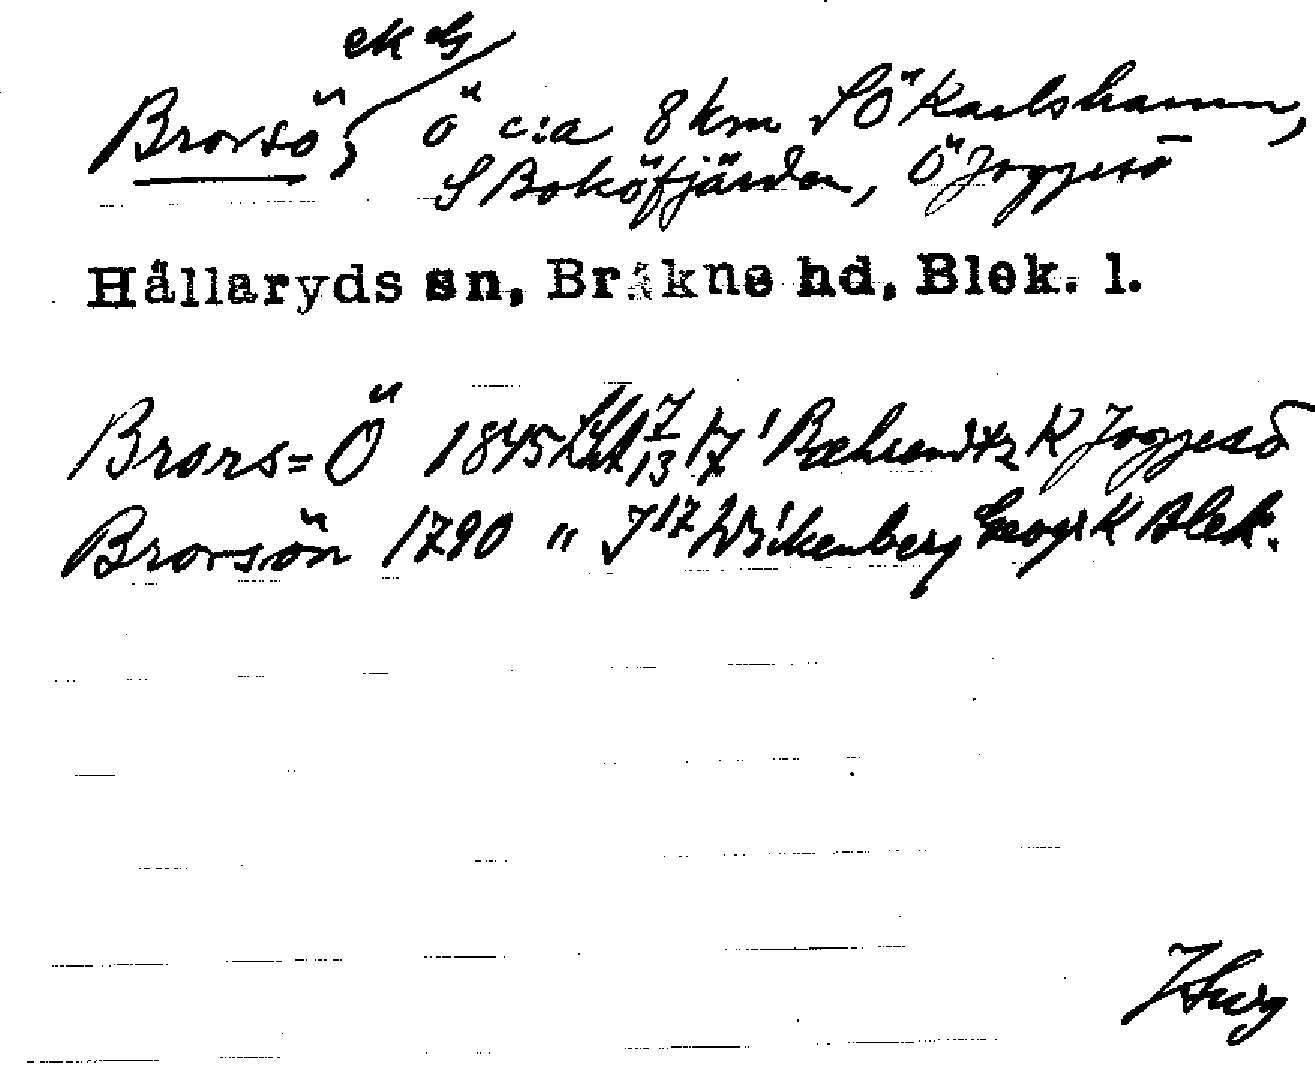 ek G
Brorsö, Ö c:a 8 km SÖ Karlshamn,
S Boköfjärden, Ö Joggesö
Hällaryds sn, Bräkne hd, Blek. l.
Brors=Ö 1845 7/13 Bæhrendtz K Joggesö
Brorsön 1790 " J 17 Wikenberg Geogr K Blek.